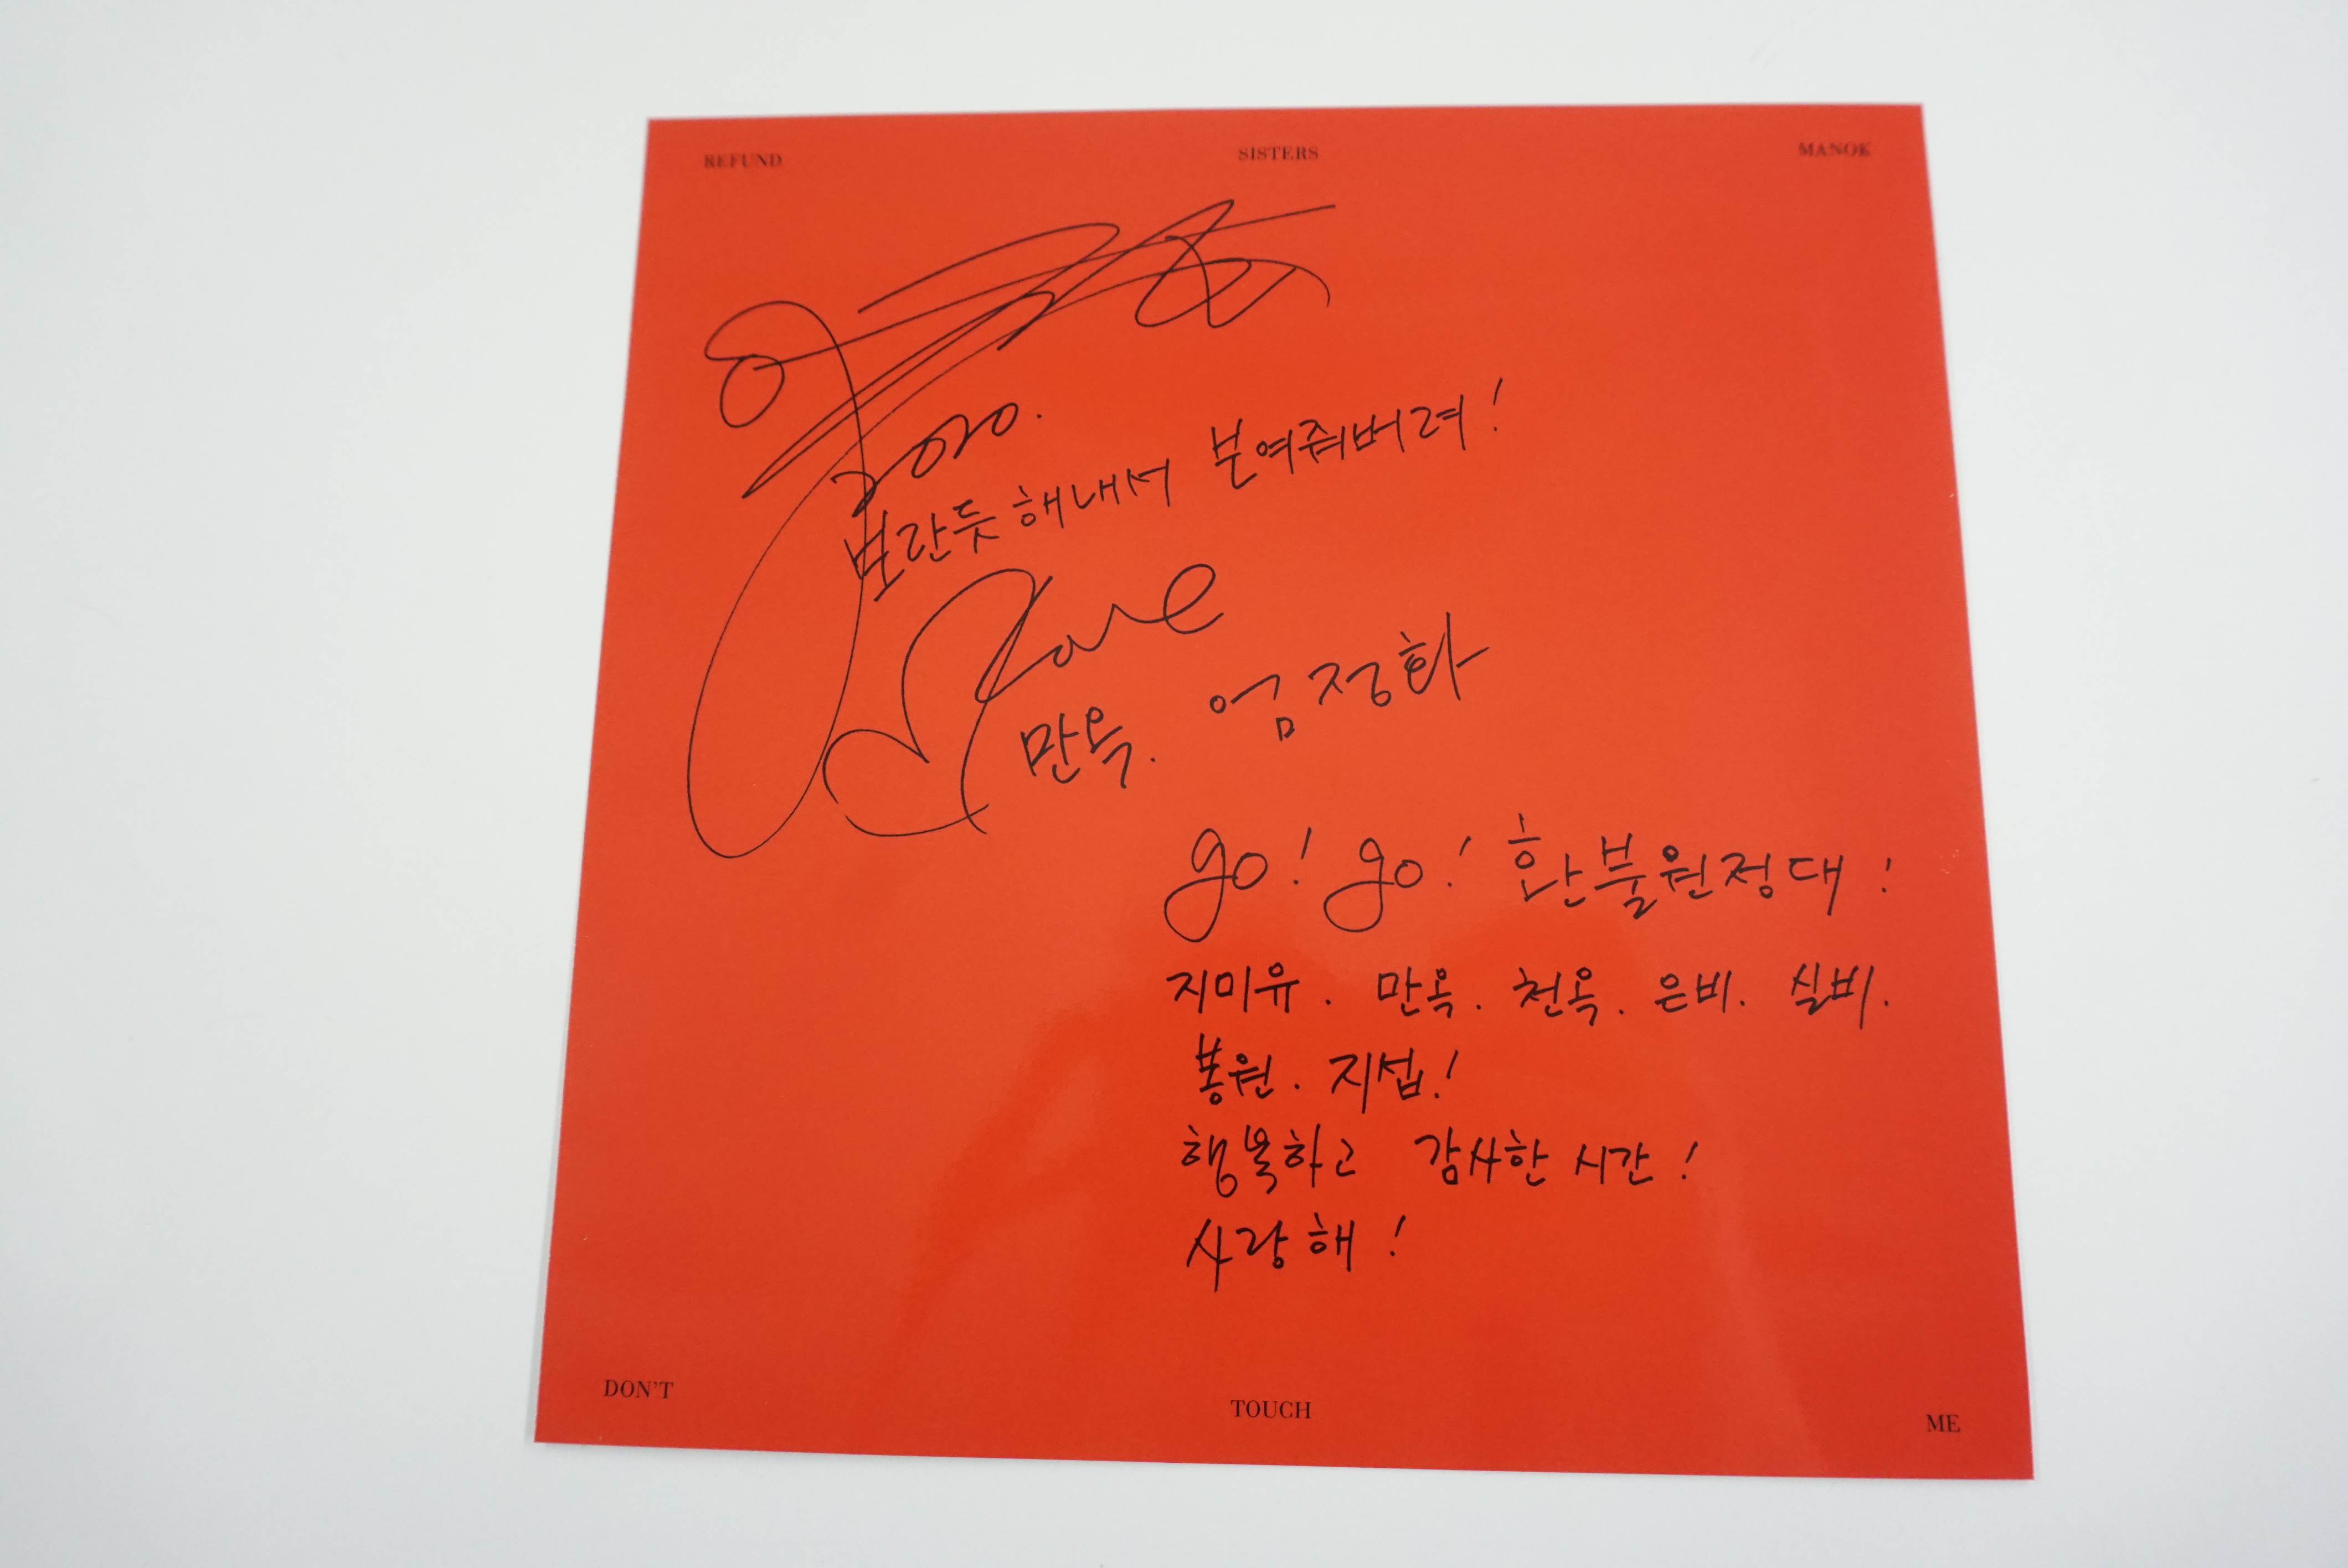 REFUND SISTERS MANOK
2020.
보란듯 해내서 분여줘버려!
love
만옥. 엄정화
go! go! 환불원정대!
지미유. 만옥. 천옥. 은비. 실비.
봉원. 지섭!
행복하고 감사한 시간!
사랑해!
DON'T TOUCH ME